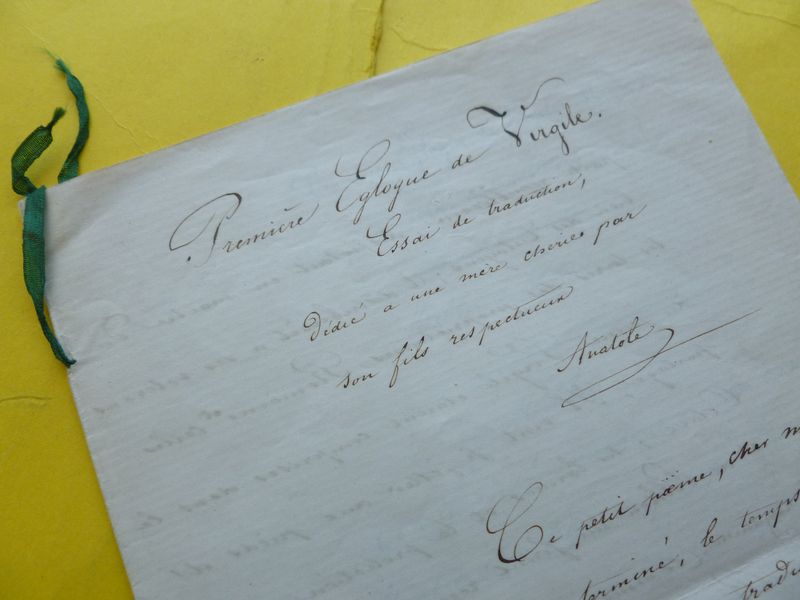 Première Eglogue de Virgile.
Essai de traduction,
Dédié a une mère chérie par
son fils respectueux
Anatole
Ce petit poëme, cher m
terminé, le temps
tradu